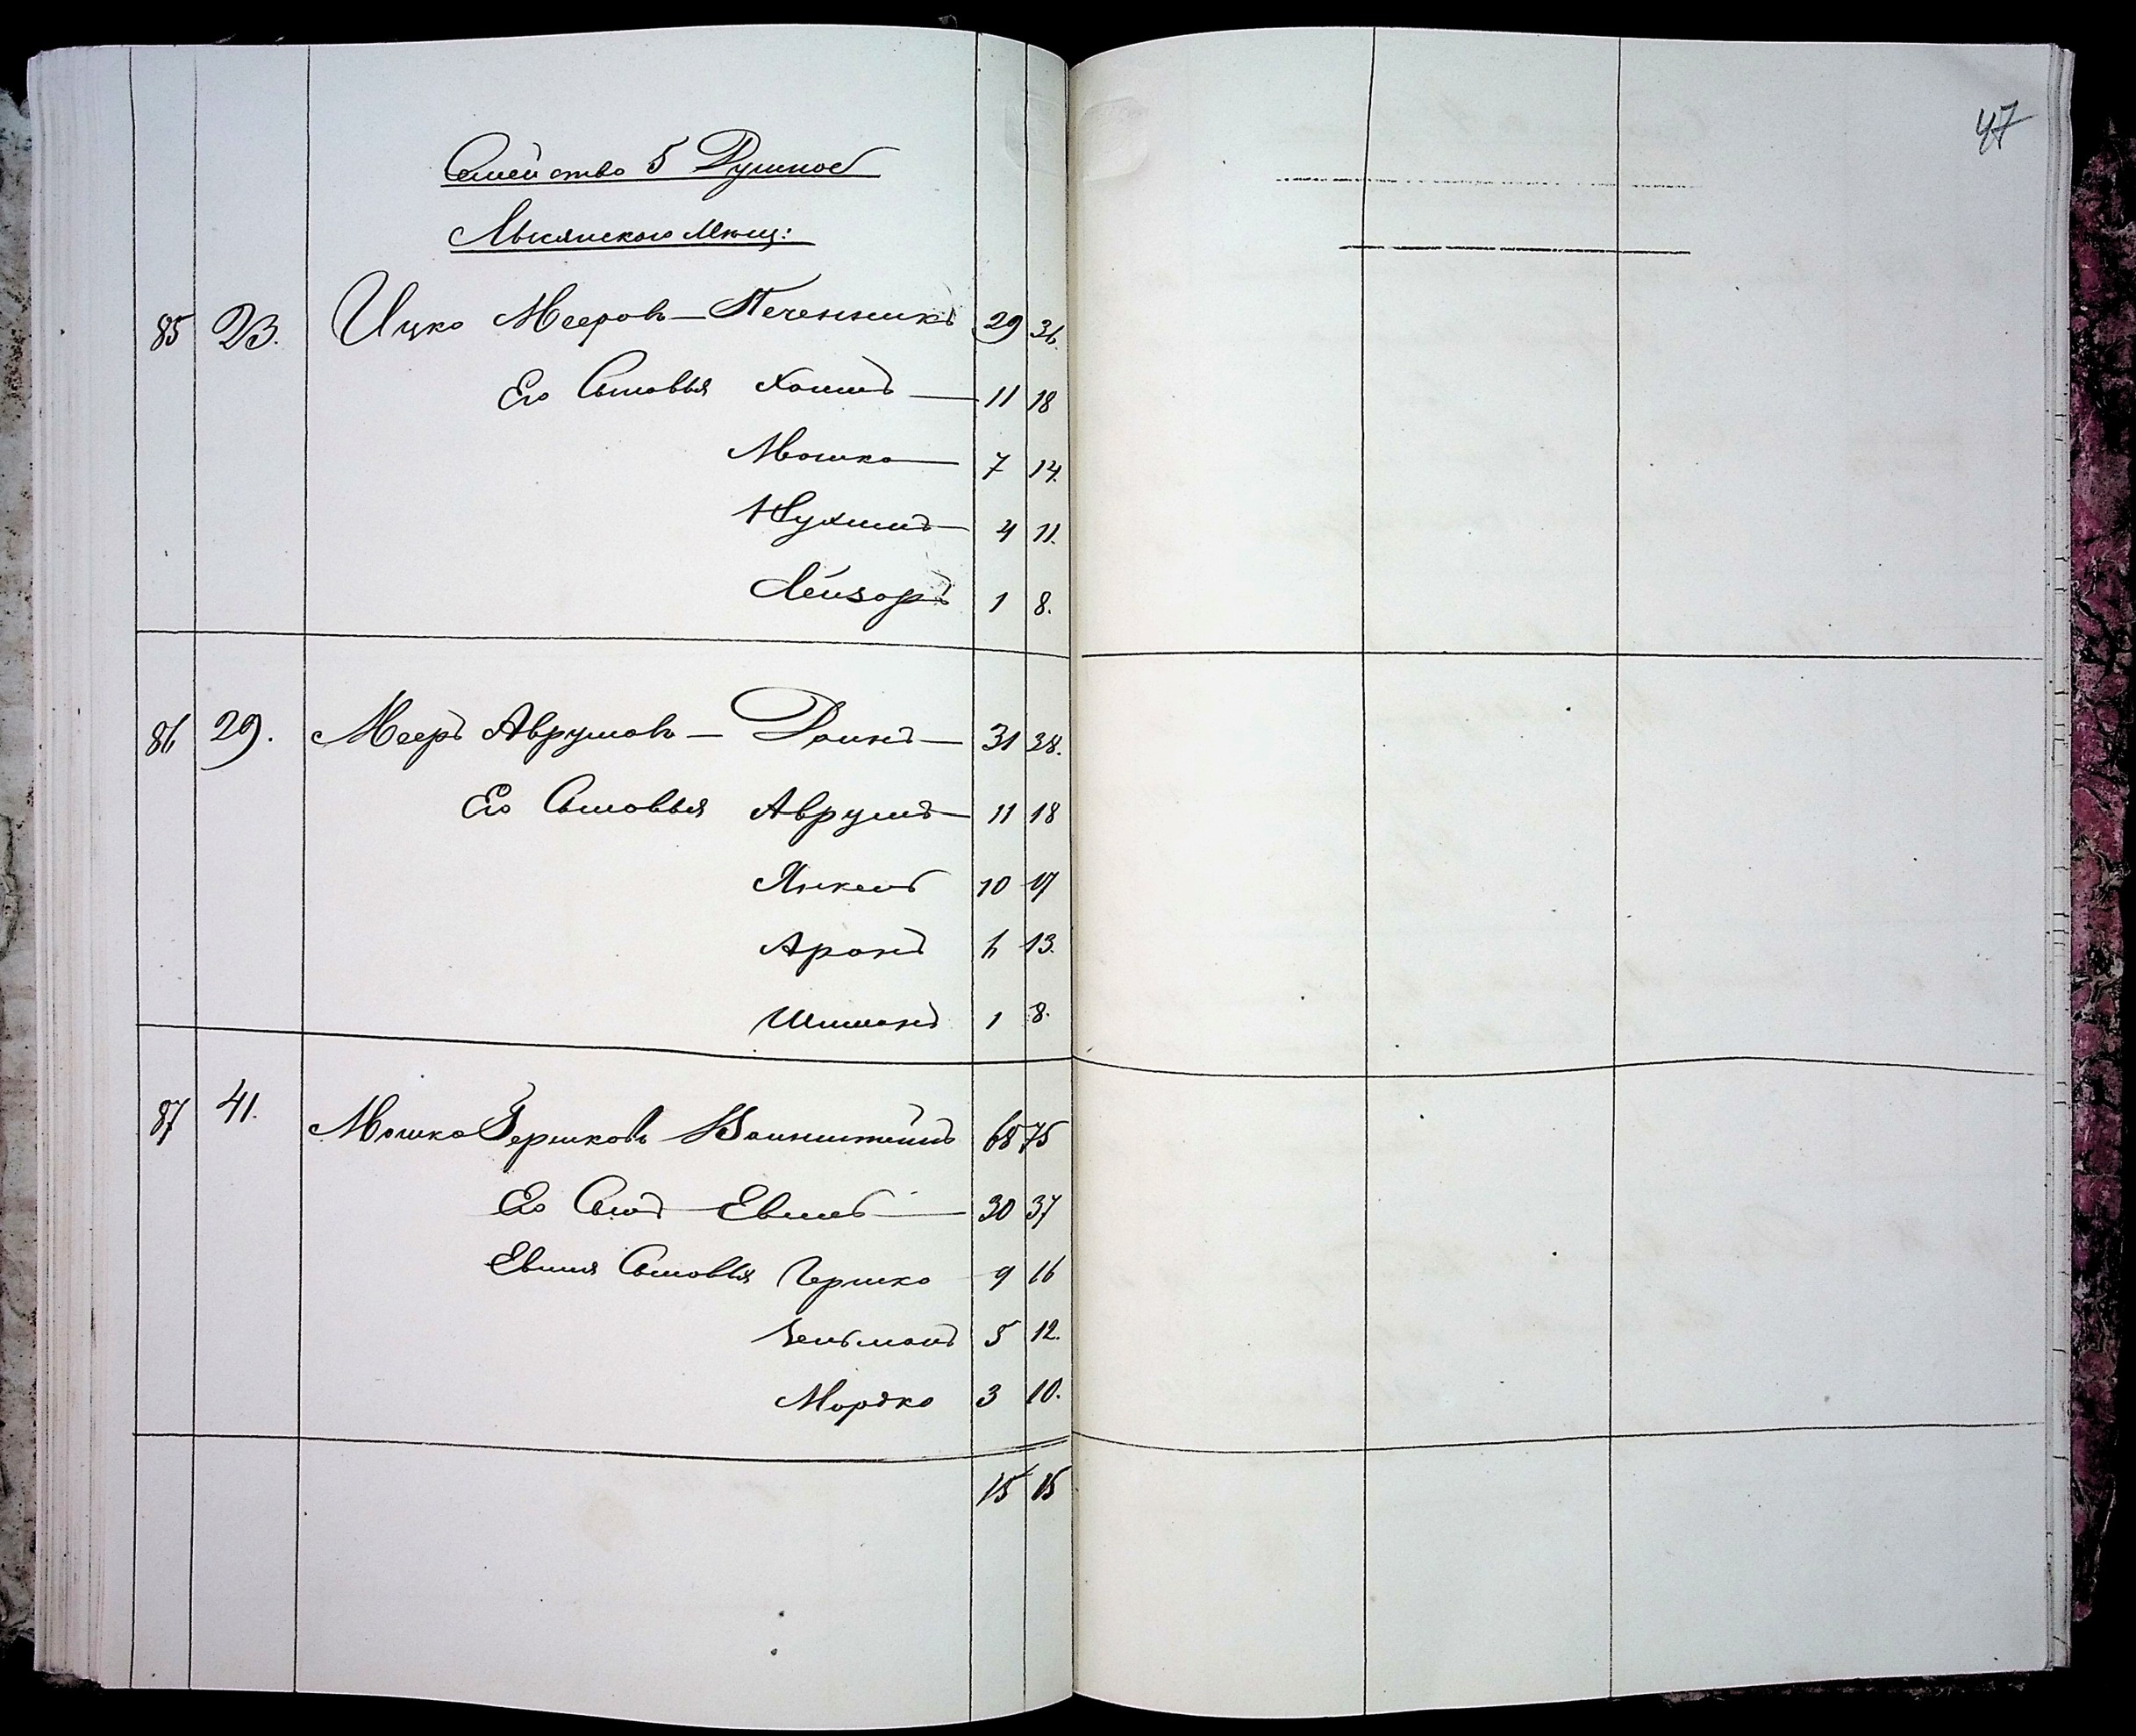 47
Семейство 5 Душное
Лысянского Мѣщ:
85 23. Ицко Мееровъ — Печенникъ 29 36.
Его Сыновья Хаимъ — 11 18
Мошко — 7 14.
Нухимъ — 4 11.
Лейзоръ 1 8.
86 29. Мееръ Аврумовъ — Раинъ — 31 38.
Его Сыновья Аврумъ — 11 18
Янкель 10 17
Аронъ 6 13.
Шимонъ 1 8.
87 41. Мошко Гершковъ Ваинштейнъ 68 75
Его Сынъ — Евель — 30 37
Евеля Сыновья Гершко 9 16
Зельманъ 5 12.
Мордко 3 10.
15 15